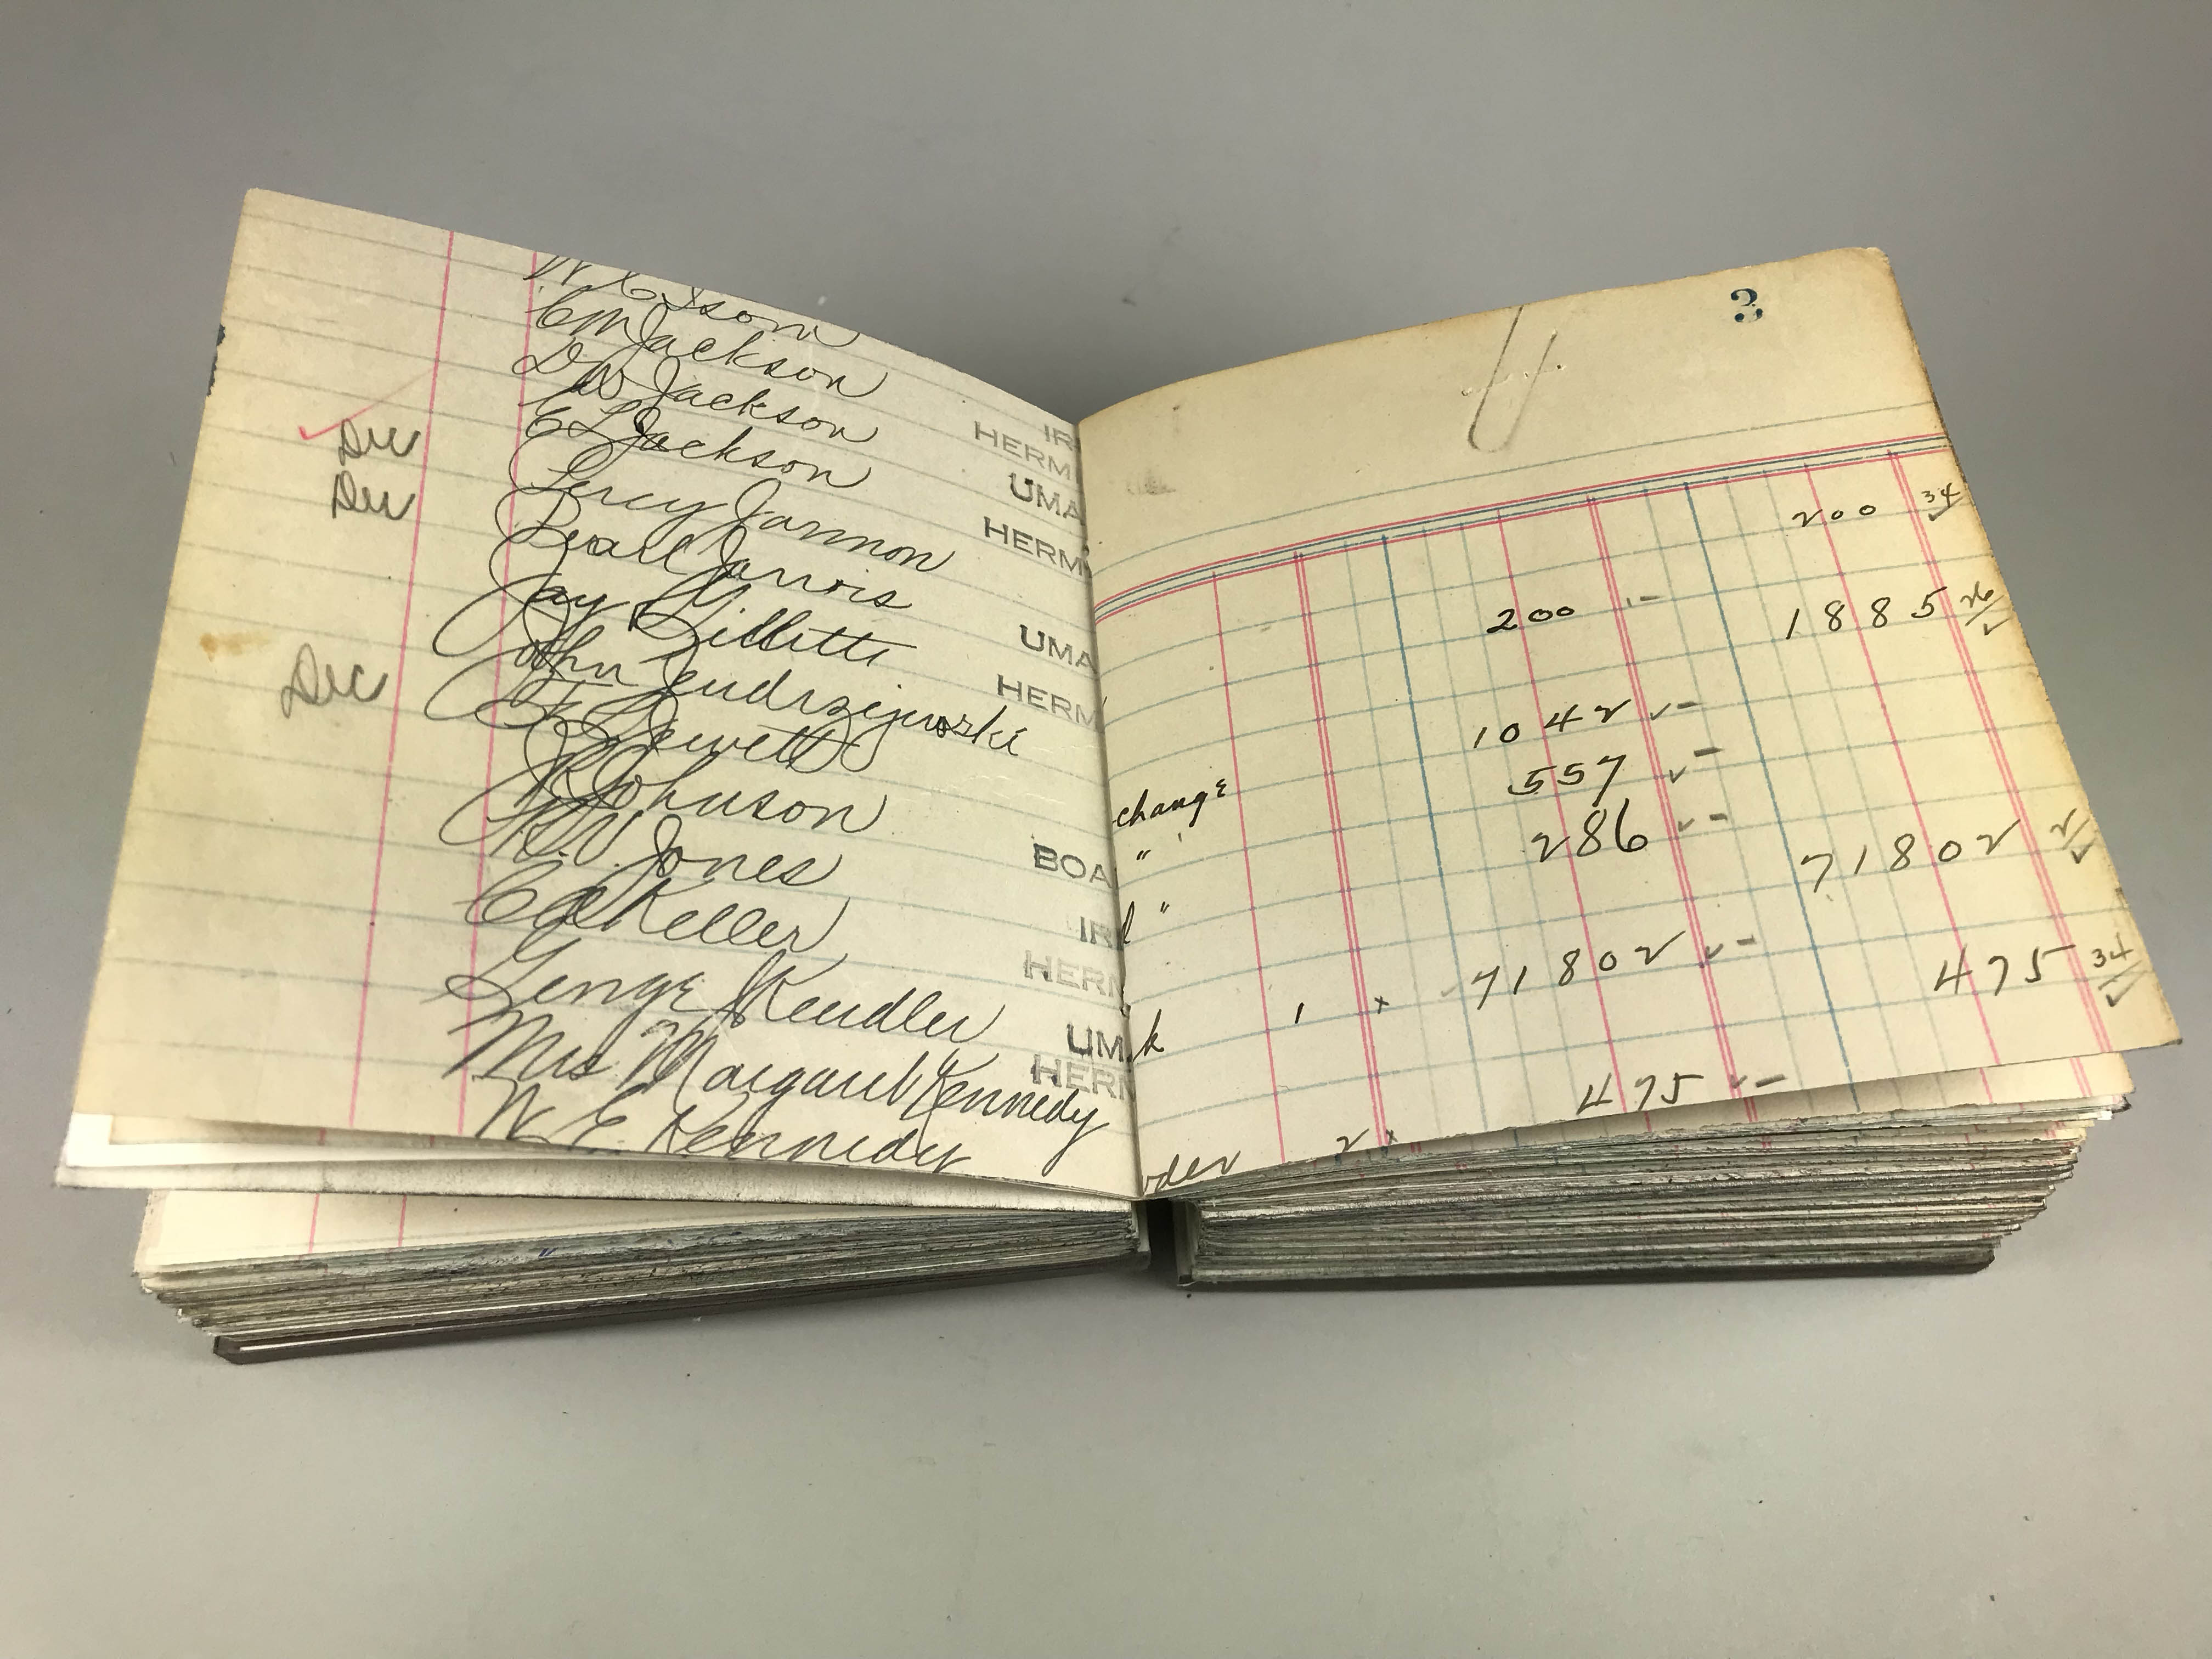 W E Ison
C M Jackson
IR
D W Jackson
HERM
E L Jackson
UMA
Dec
Percy Jarmon
HERM
Dec
Pearl Jarvis
Jay Gillette
UMA
John Jendrzejewski
HERM
Dec
Jewett
R Johnson
R. W. Jones
BOA
C A Keller
IR
George Kendler
HERM
Mrs Margaret Kennedy
UM
HERM
W E Kennedy
3
200 34
200 -
1885 26
1042 -
557 -
change 286 -
" 71802 2
" 71802 -
k 1 x 475 34
475 -
der 2 x